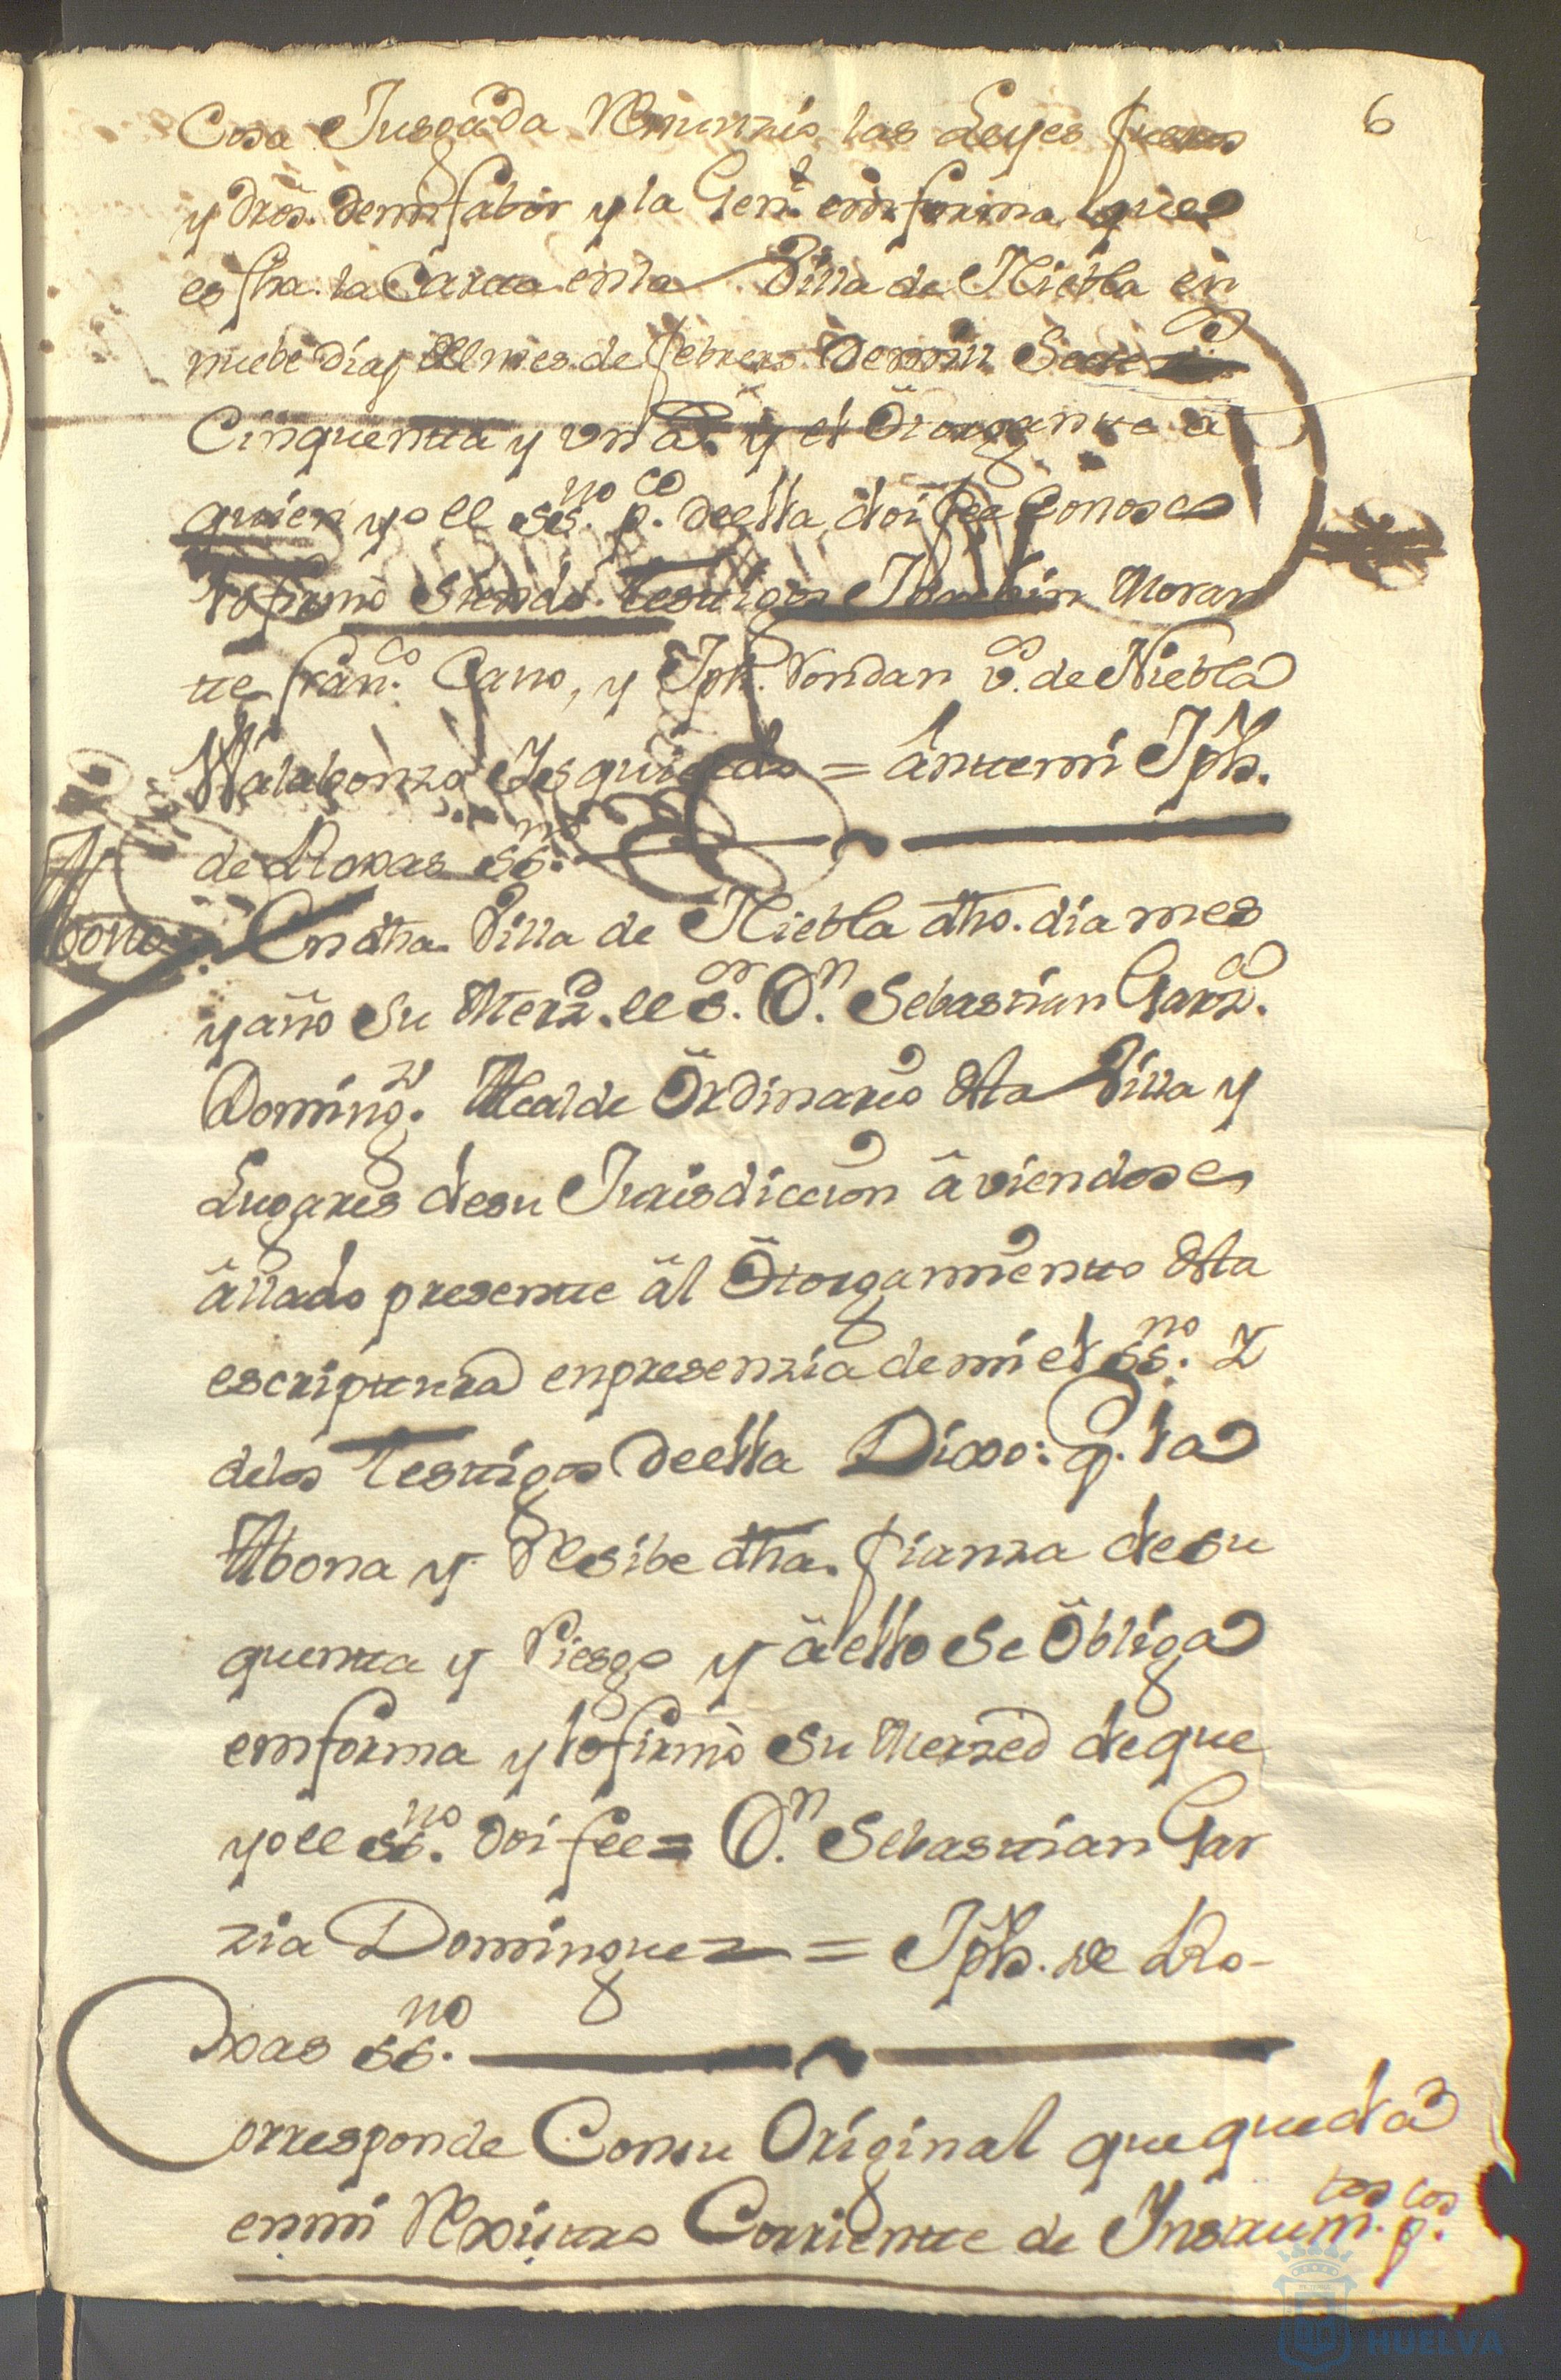 6
Cosa Jusgada Renunzio las Leyes fueros
y dros. demi fabor y la Gen.l en forma que
es fha. la Carta en la Villa de Niebla en
nuebe dias del mes de febrero de mill Setecos.
Cinquenta y un a.s y el ôtorgante â
quien yo el ss.no p.co de ella doi fee Conosco
lo firmò siendo testigos Joachin Moran
te fran.co Cano, y Jph. Roldan v.os de Niebla
Izquierdo = ânttemi Jph.
de Roxas ss.no
Abono
En dha. Villa de Niebla dho. dia mes
y año su Merz.d el s.or D.n Sebastian Garz.a
Doming.z Alcalde Ôrdinario dsta Villa y
Lugares de su Jurisdiccion âviendose
âllado presentte âl Ôtorgamientto dsta
escripttura en presenzia de mi el ss.no Y
delos testtigos de ella Dixo: q. la
Abona y Resibe dha. fianza de su
quentta y Riesgo y â ello se Ôbliga
en forma y lo firmò su Merzed de que
yo el ss.no doi fee = D.n Sebasttian Gar
zia Dominguez = Jph. de Ro-
xas ss.no
Corresponde Consu Original que queda
en mi Rexisttro Corrientte de Instrum.tos p.cos
HUELVA